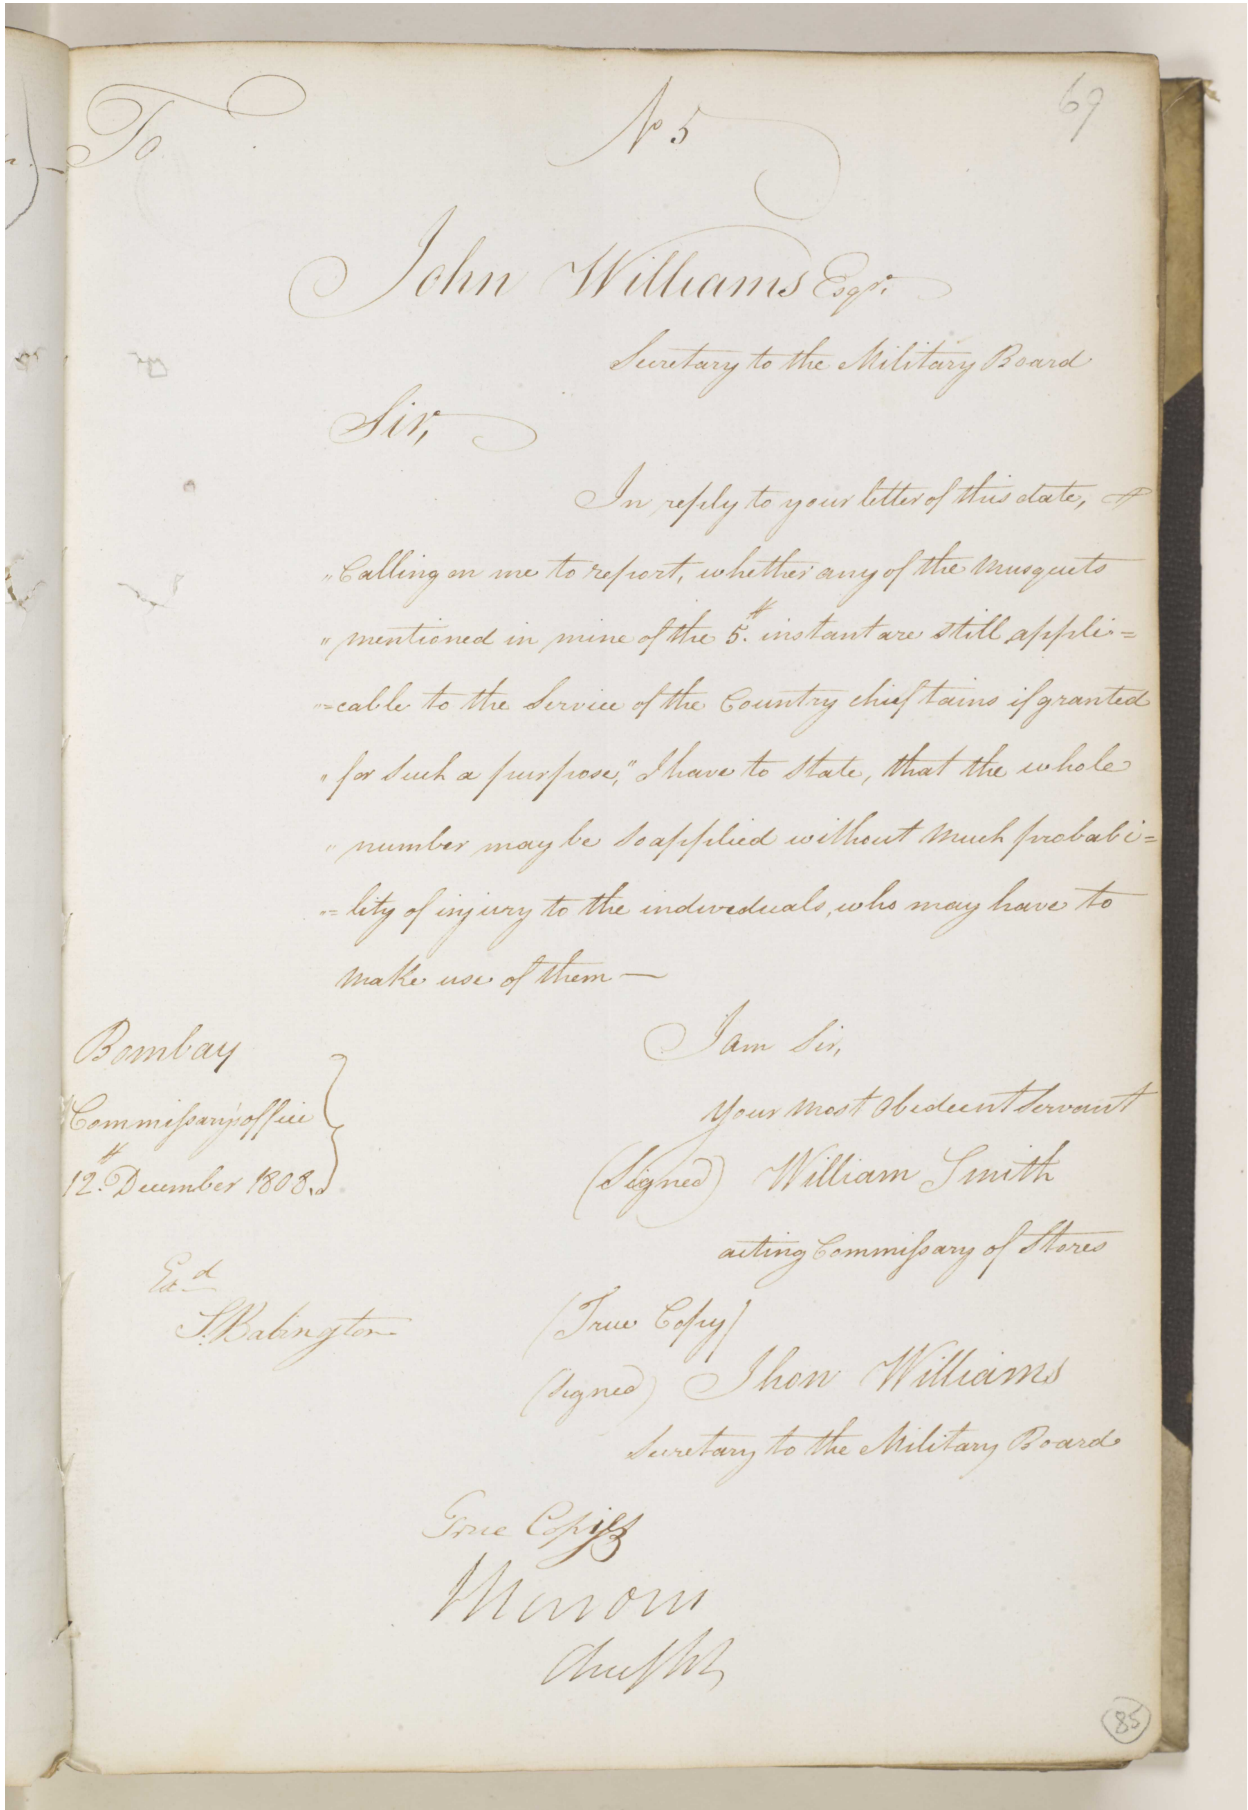 69
To
No 5
John Williams Esqr.
Secretary to the Military Board
Sir,
In reply to your letter of this date,
"Calling on me to report, whether any of the Musquets
" mentioned in mine of the 5th. instant are still appli=
"=cable to the Service of the Country chieftains if granted
" for such a purpose," I have to state, that the whole
" number may be so applied without much probabi=
"=lity of injury to the individuals, who may have to
make use of them —
I am Sir,
Your most Obedient Servant
(Signed) William Smith
acting Commissary of Stores
Bombay
Commissary's office
12th. December 1808.
Exd
S. Babington
(True Copy)
(signed) Jhon Williams
Secretary to the Military Board
True Copies
85